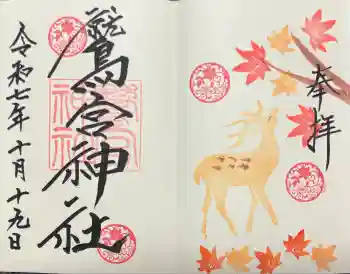 奉拝
鷲宮神社
令和七年十月十九日